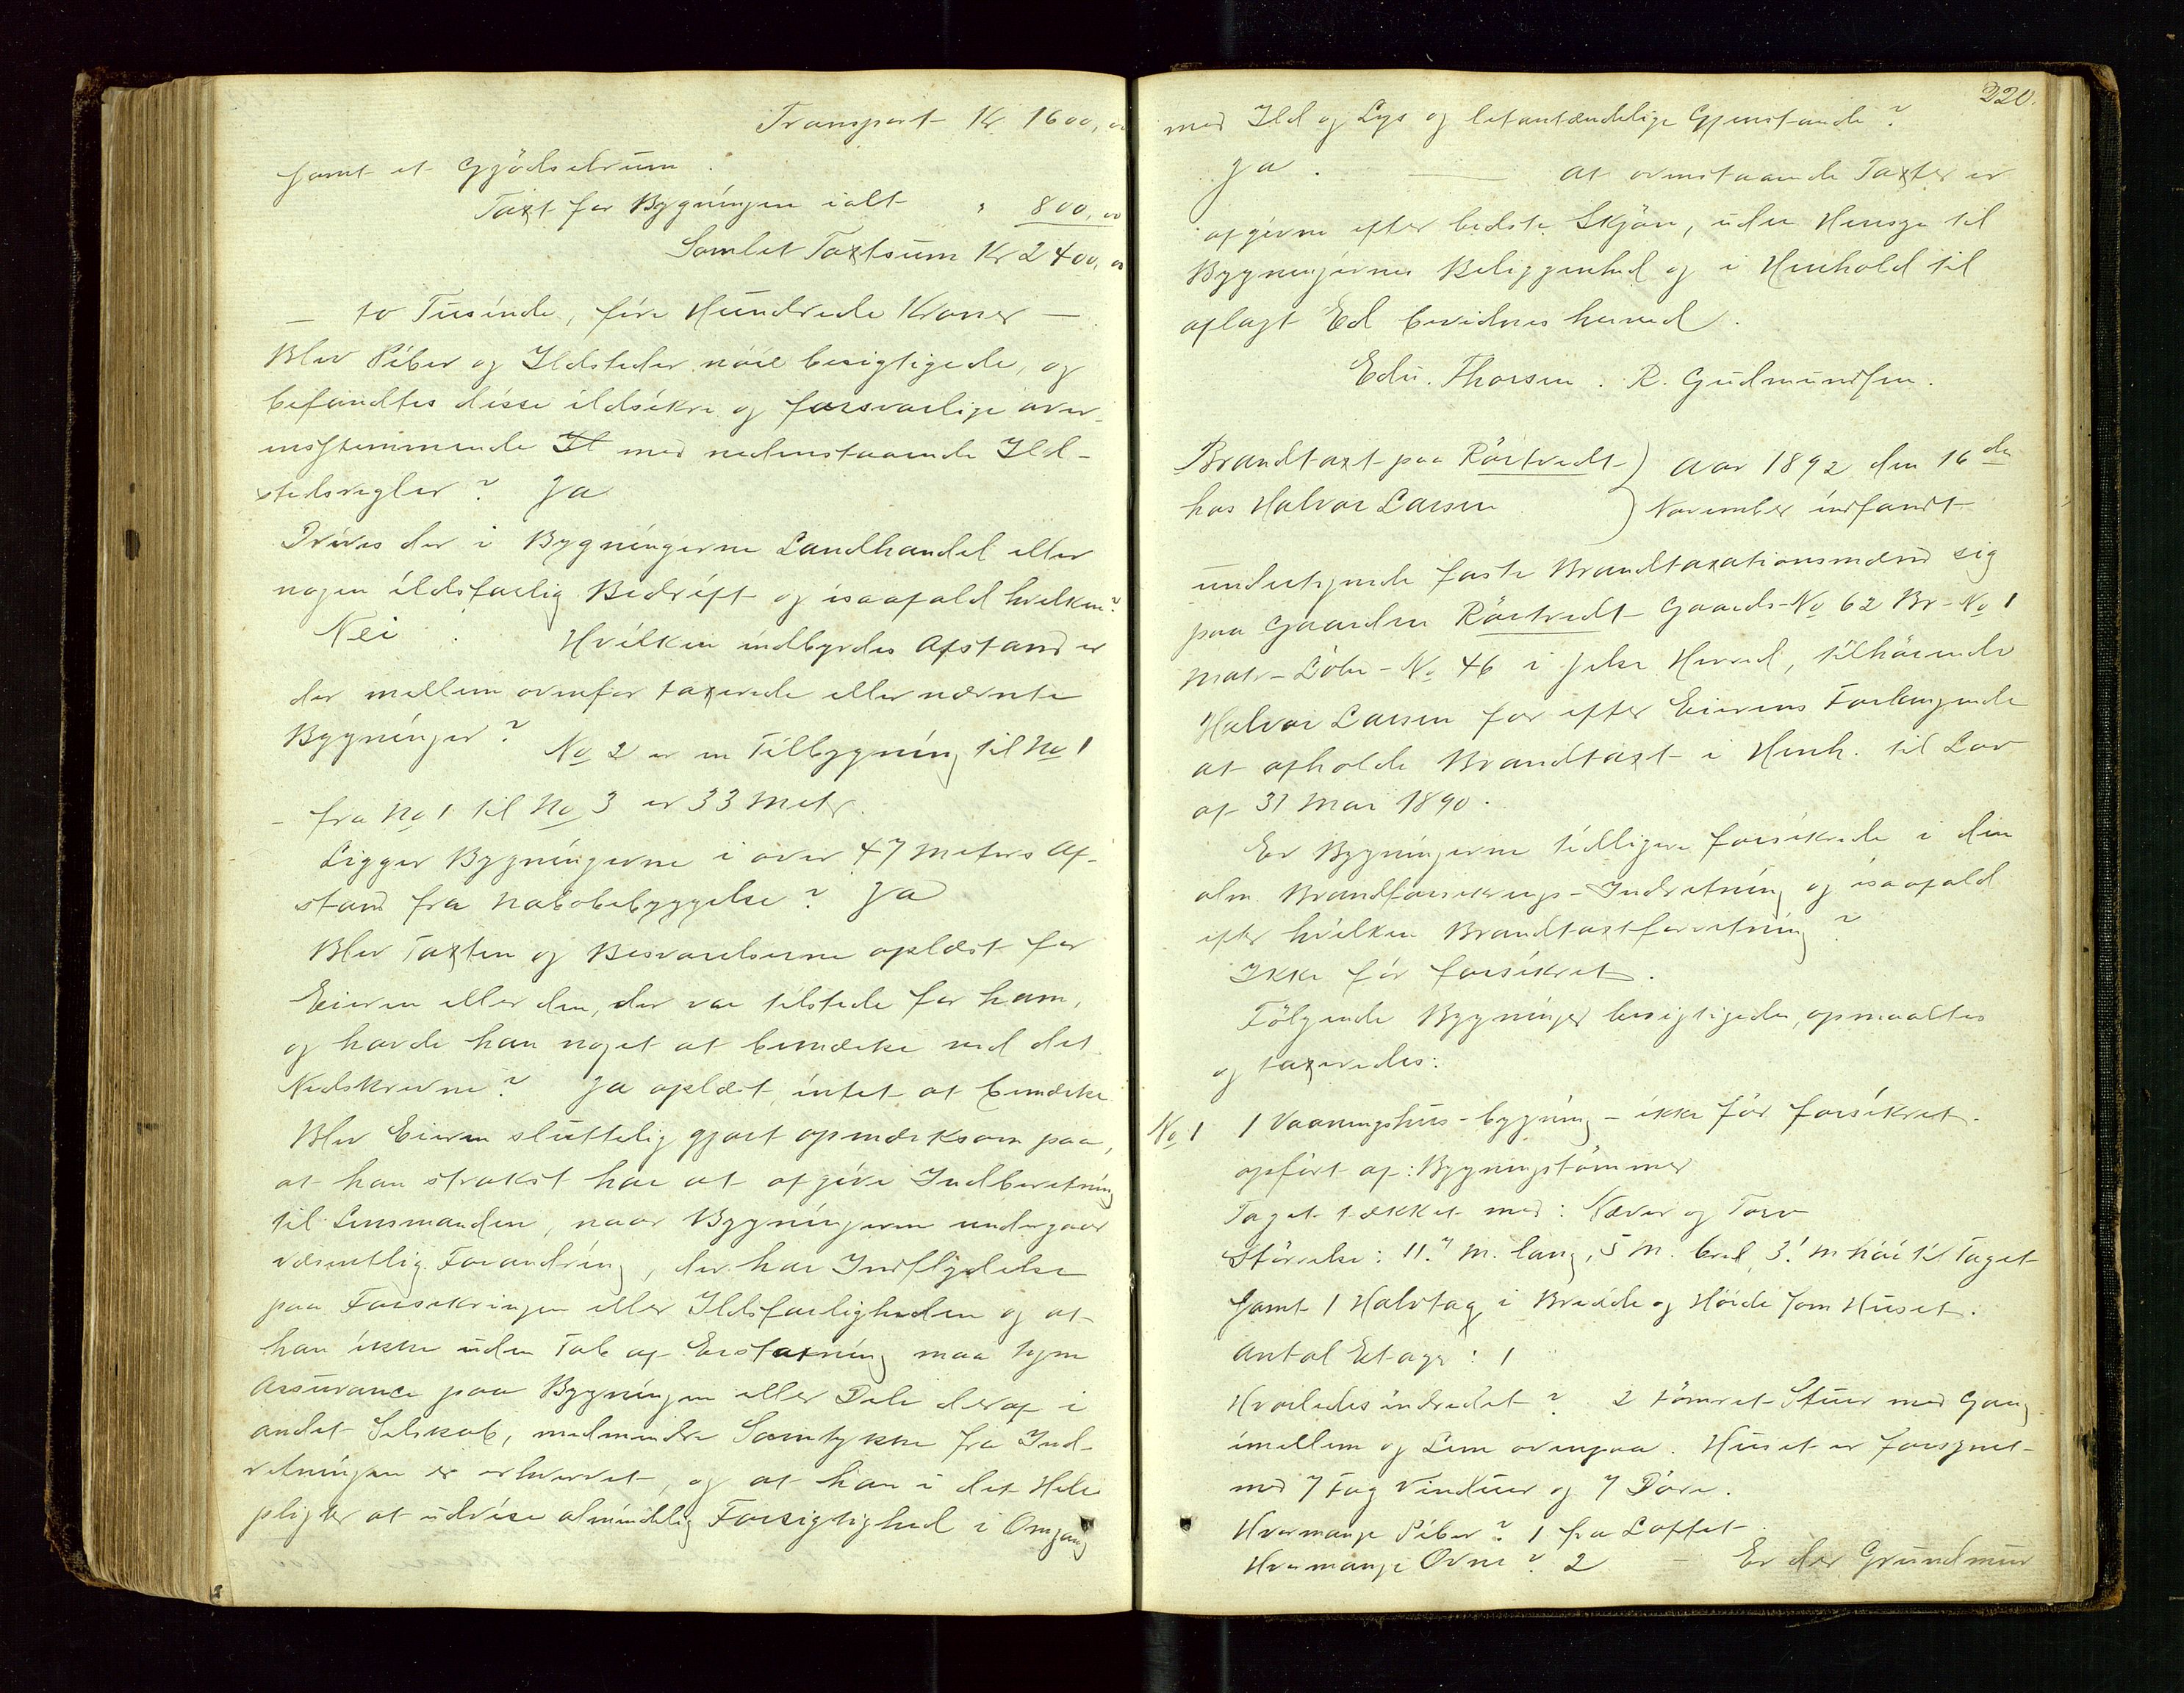 Transport Kr 1600,00
samt et Gjödselrum.
Taxt for Bygningen ialt " 800,00
Samlet Taxtsum Kr 2400,00
— to Tusinde, fire Hundrede Kroner —
Blev Piber og Ildsteder nöie besigtigede, og
befandtes disse ildsikre og forsvarlige over-
ensstemmende Il med nedenstaaende Ild-
stedsregler? Ja
Drives der i Bygningerne Landhandel eller
nogen ildsfarlig Bedrift og isaafald hvilken?
Nei. Hvilken indbyrdes Afstand er
der mellem ovenfor taxerede eller nævnte
Bygninger? No 2 er en Tilbygning til No 1
- fra No 1 til No 3 er 33 Metr.
Ligger Bygningerne i over 47 Meters Af-
stand fra Nabobebyggelse? Ja
Blev Taxten og Besvarelserne oplæst for
Eieren eller den, der var tilstede for ham,
og havde han noget at bemærke ved det
Nedskrevne? Ja oplæst, intet at bemærke
Blev Eieren sluttelig gjort opmærksom paa,
at han strakst har at afgive Indberetning
til Lensmanden, naar Bygningerne undergaar
væsentlig Forandring, der har Indflydelse
paa Forsikringen eller Ildsfarligheden og at
han ikke uden Tab af Erstatning maa tegne
Assurance paa Bygningen eller Dele deraf i
andet Selskab, medmindre Samtykke fra Ind-
retningen er erhvervet, og at han i det Hele
pligter at udvise almindelig Forsigtighed i Omgang
220.
med Ild og Lys og letantændelige Gjenstande?
Ja. — at ovenstaaende Taxter er
afgivne efter bedste Skjön, uden Hensyn til
Bygningernes Beliggenhed og i Henhold til
aflagt Ed bevidnes herved.
Edv. Thorsen. R. Gudmundsen.
Brandtaxt paa Rörtvedt ) Aar 1892 den 16de
hos Halvor Larsen ) November indfandt
undertegnede faste Brandtaxationsmænd sig
paa Gaarden Rörtvedt Gaards-No 62 Br-No 1
Matr-Löbe-No 46 i Jelse Herred, tilhörende
Halvor Larsen for efter Eierens Forlangende
at afholde Brandtaxt i Henh. til Lov
af 31 Mai 1890.
Er Bygningerne tidligere forsikrede i den
alm. Brandforsikrings-Indretning og isaafald
efter hvilken Brandtaxtforretning?
Ikke för forsikret.
Fölgende Bygninger besigtigedes, opmaaltes
og taxeredes:
No 1 1 Vaaningshus-bygning - ikke för forsikret.
opfört af: Bygningstömmer
Taget tækket med: Næver og Torv
Störrelse: 11.7 M. lang, 5 M. bred, 3.1 M höi til Taget
samt 1 Halvtag i Bredde og Höide som Huset.
Antal Etager: 1
Hvorledes indredet? 2 tömret Stuer med Gang
imellem og Lem ovenpaa. Huset er forsynet
med 7 Fag Vinduer og 7 Döre.
Hvormange Piber? 1 fra Loftet.
Hvormange Ovne? 2 - Er der Grundmur